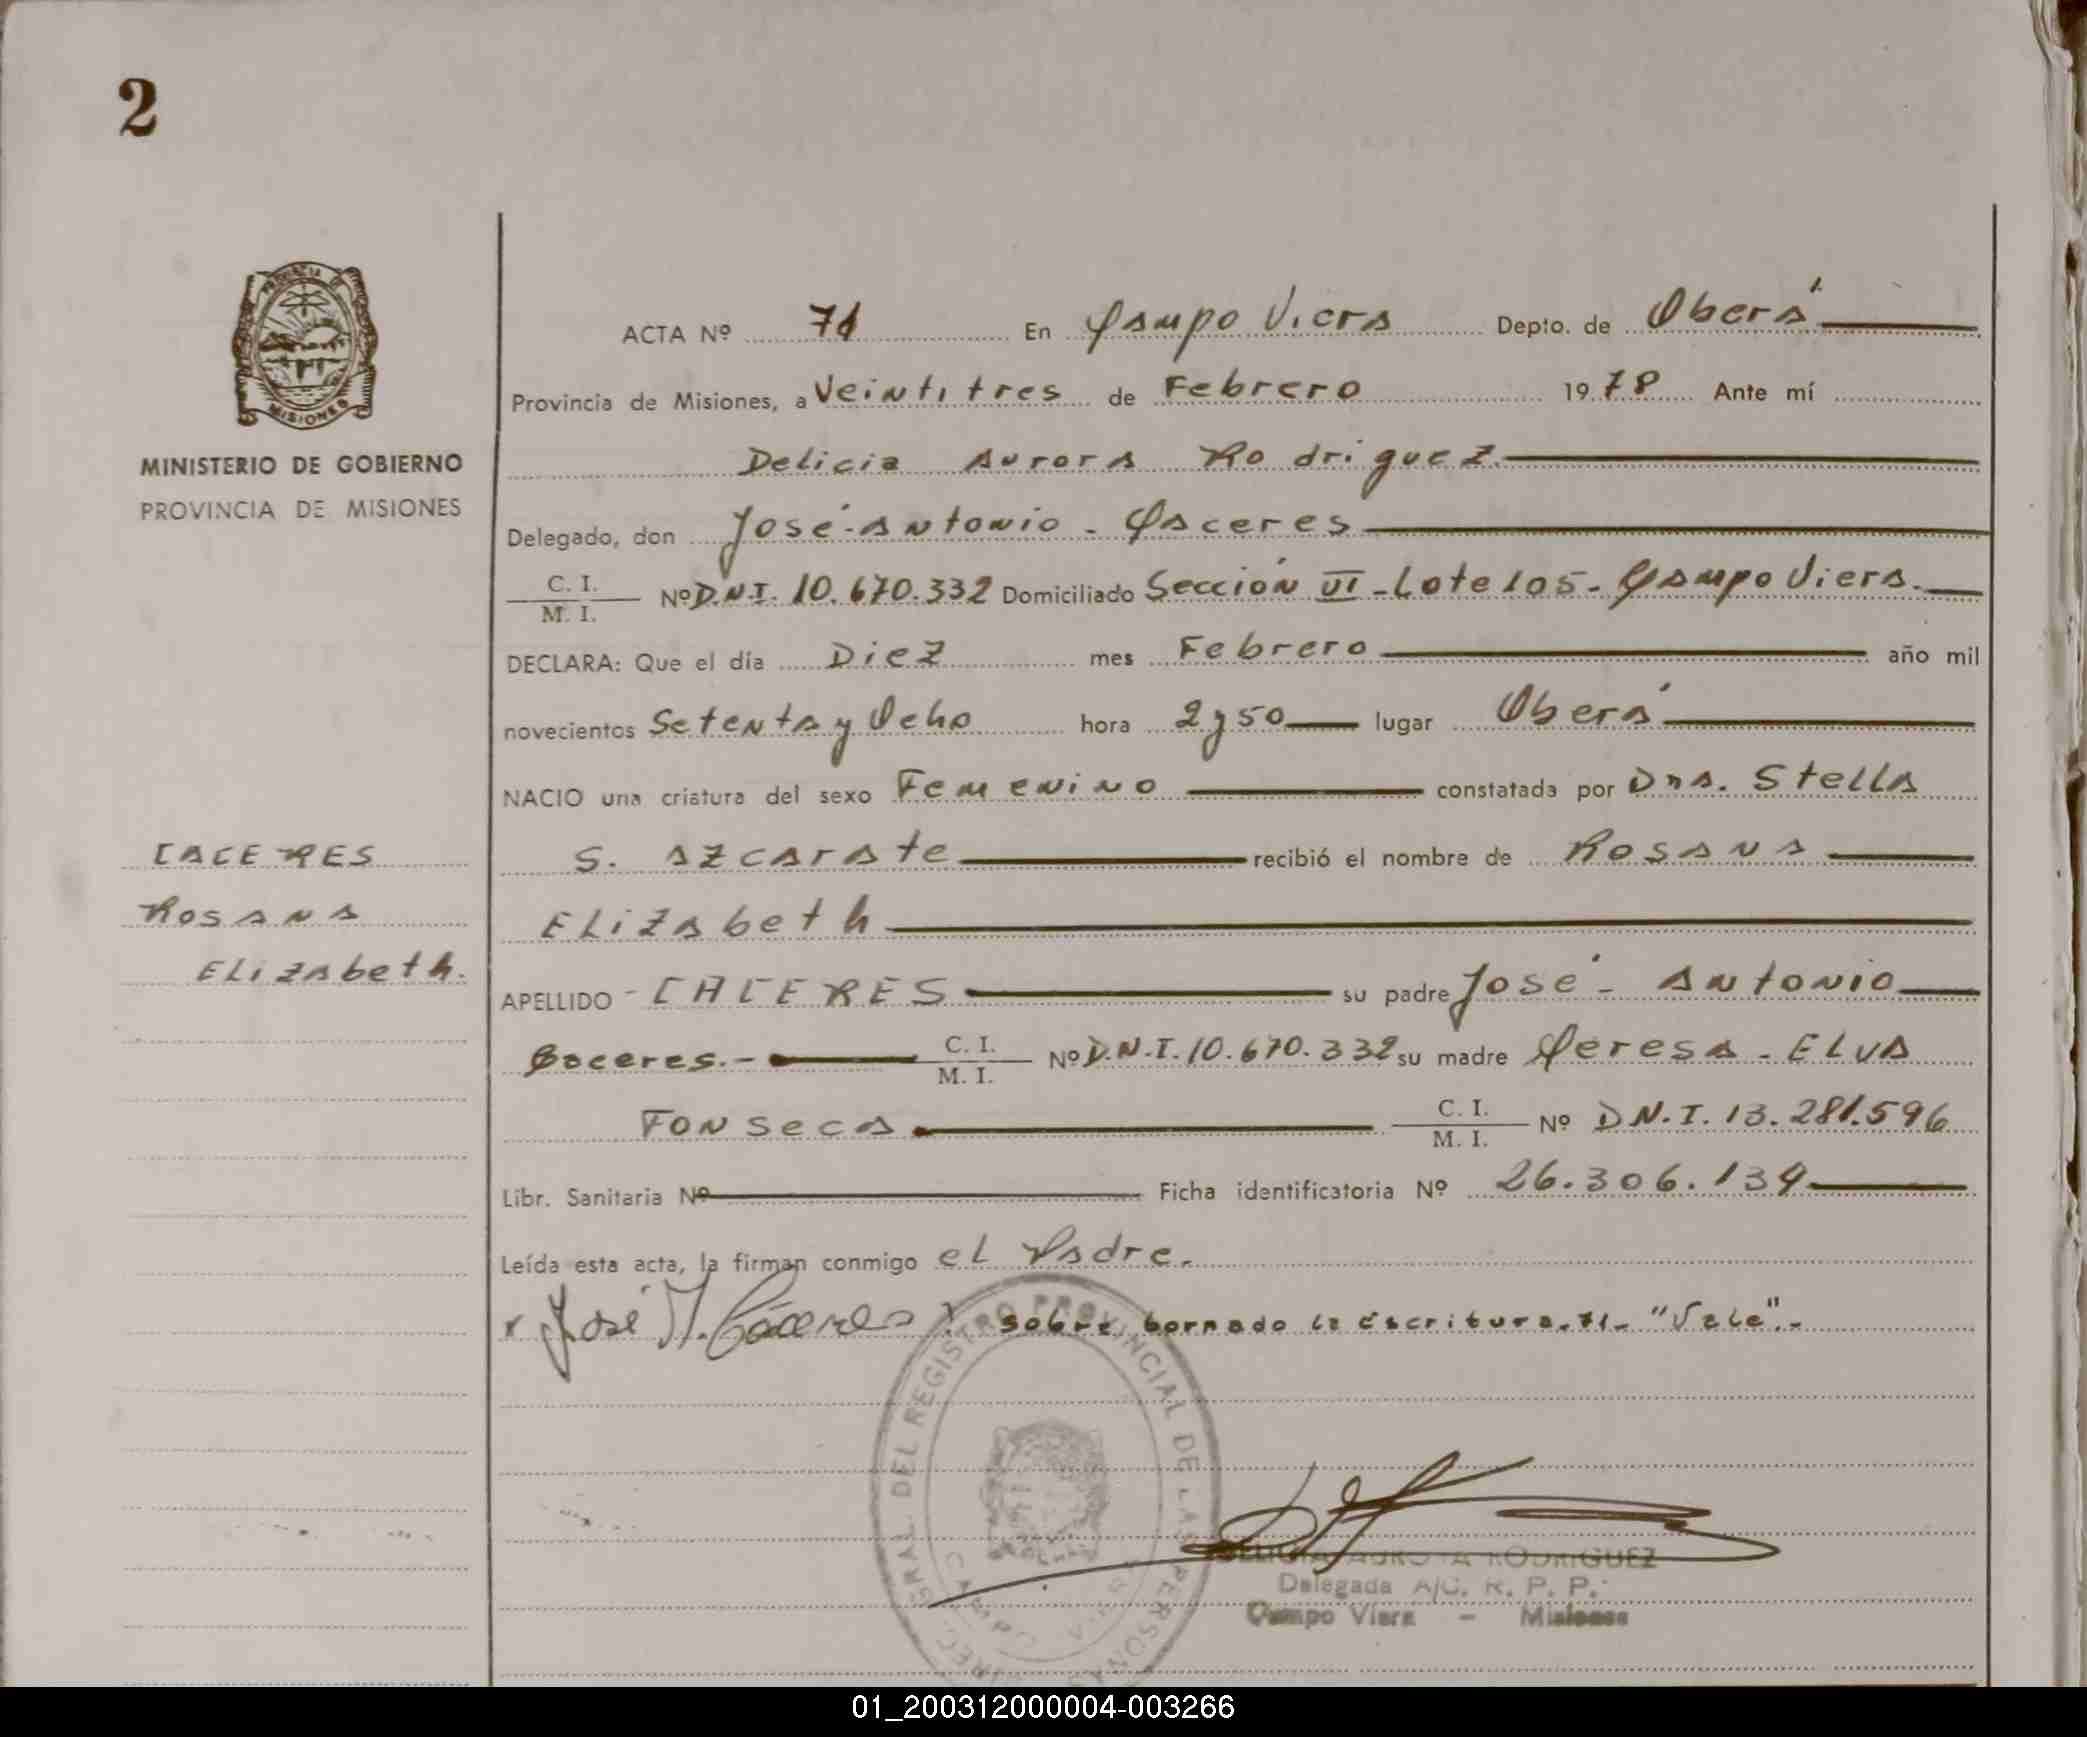 2
PROVINCIA DE
MISIONES
MINISTERIO DE GOBIERNO
PROVINCIA DE MISIONES
CACERES
Rosana
Elizabeth.
ACTA Nº 71 En Campo Viera Depto. de Oberá
Provincia de Misiones, a Veintitres de Febrero 1978 Ante mí
Delicia Aurora Rodriguez
Delegado, don José Antonio Caceres
C. I.
M. I. Nº D.N.I. 10.670.332 Domiciliado Sección VI - Lote 105 - Campo Viera.
DECLARA: Que el día Diez mes Febrero año mil
novecientos Setenta y Ocho hora 2 y 50 lugar Oberá
NACIO una criatura del sexo Femenino constatada por Dra. Stella
S. Azcarate recibió el nombre de Rosana
Elizabeth
APELLIDO - CACERES su padre José - Antonio
Caceres. - C. I.
M. I. Nº D.N.I. 10.670.332 su madre Teresa - Elva
Fonseca C. I.
M. I. Nº D.N.I. 13.281.596
Libr. Sanitaria Nº Ficha identificatoria Nº 26.306.134
Leída esta acta, la firman conmigo el Padre.
x José A. Cáceres sobre borrado la escritura. 71 - "Vale" . -
DIREC. GRAL. DEL REGISTRO PROVINCIAL DE LAS PERSONAS
DELICIA AURORA RODRIGUEZ
Delegada A/C. R. P. P.
Campo Viera - Misiones
01_200312000004-003266